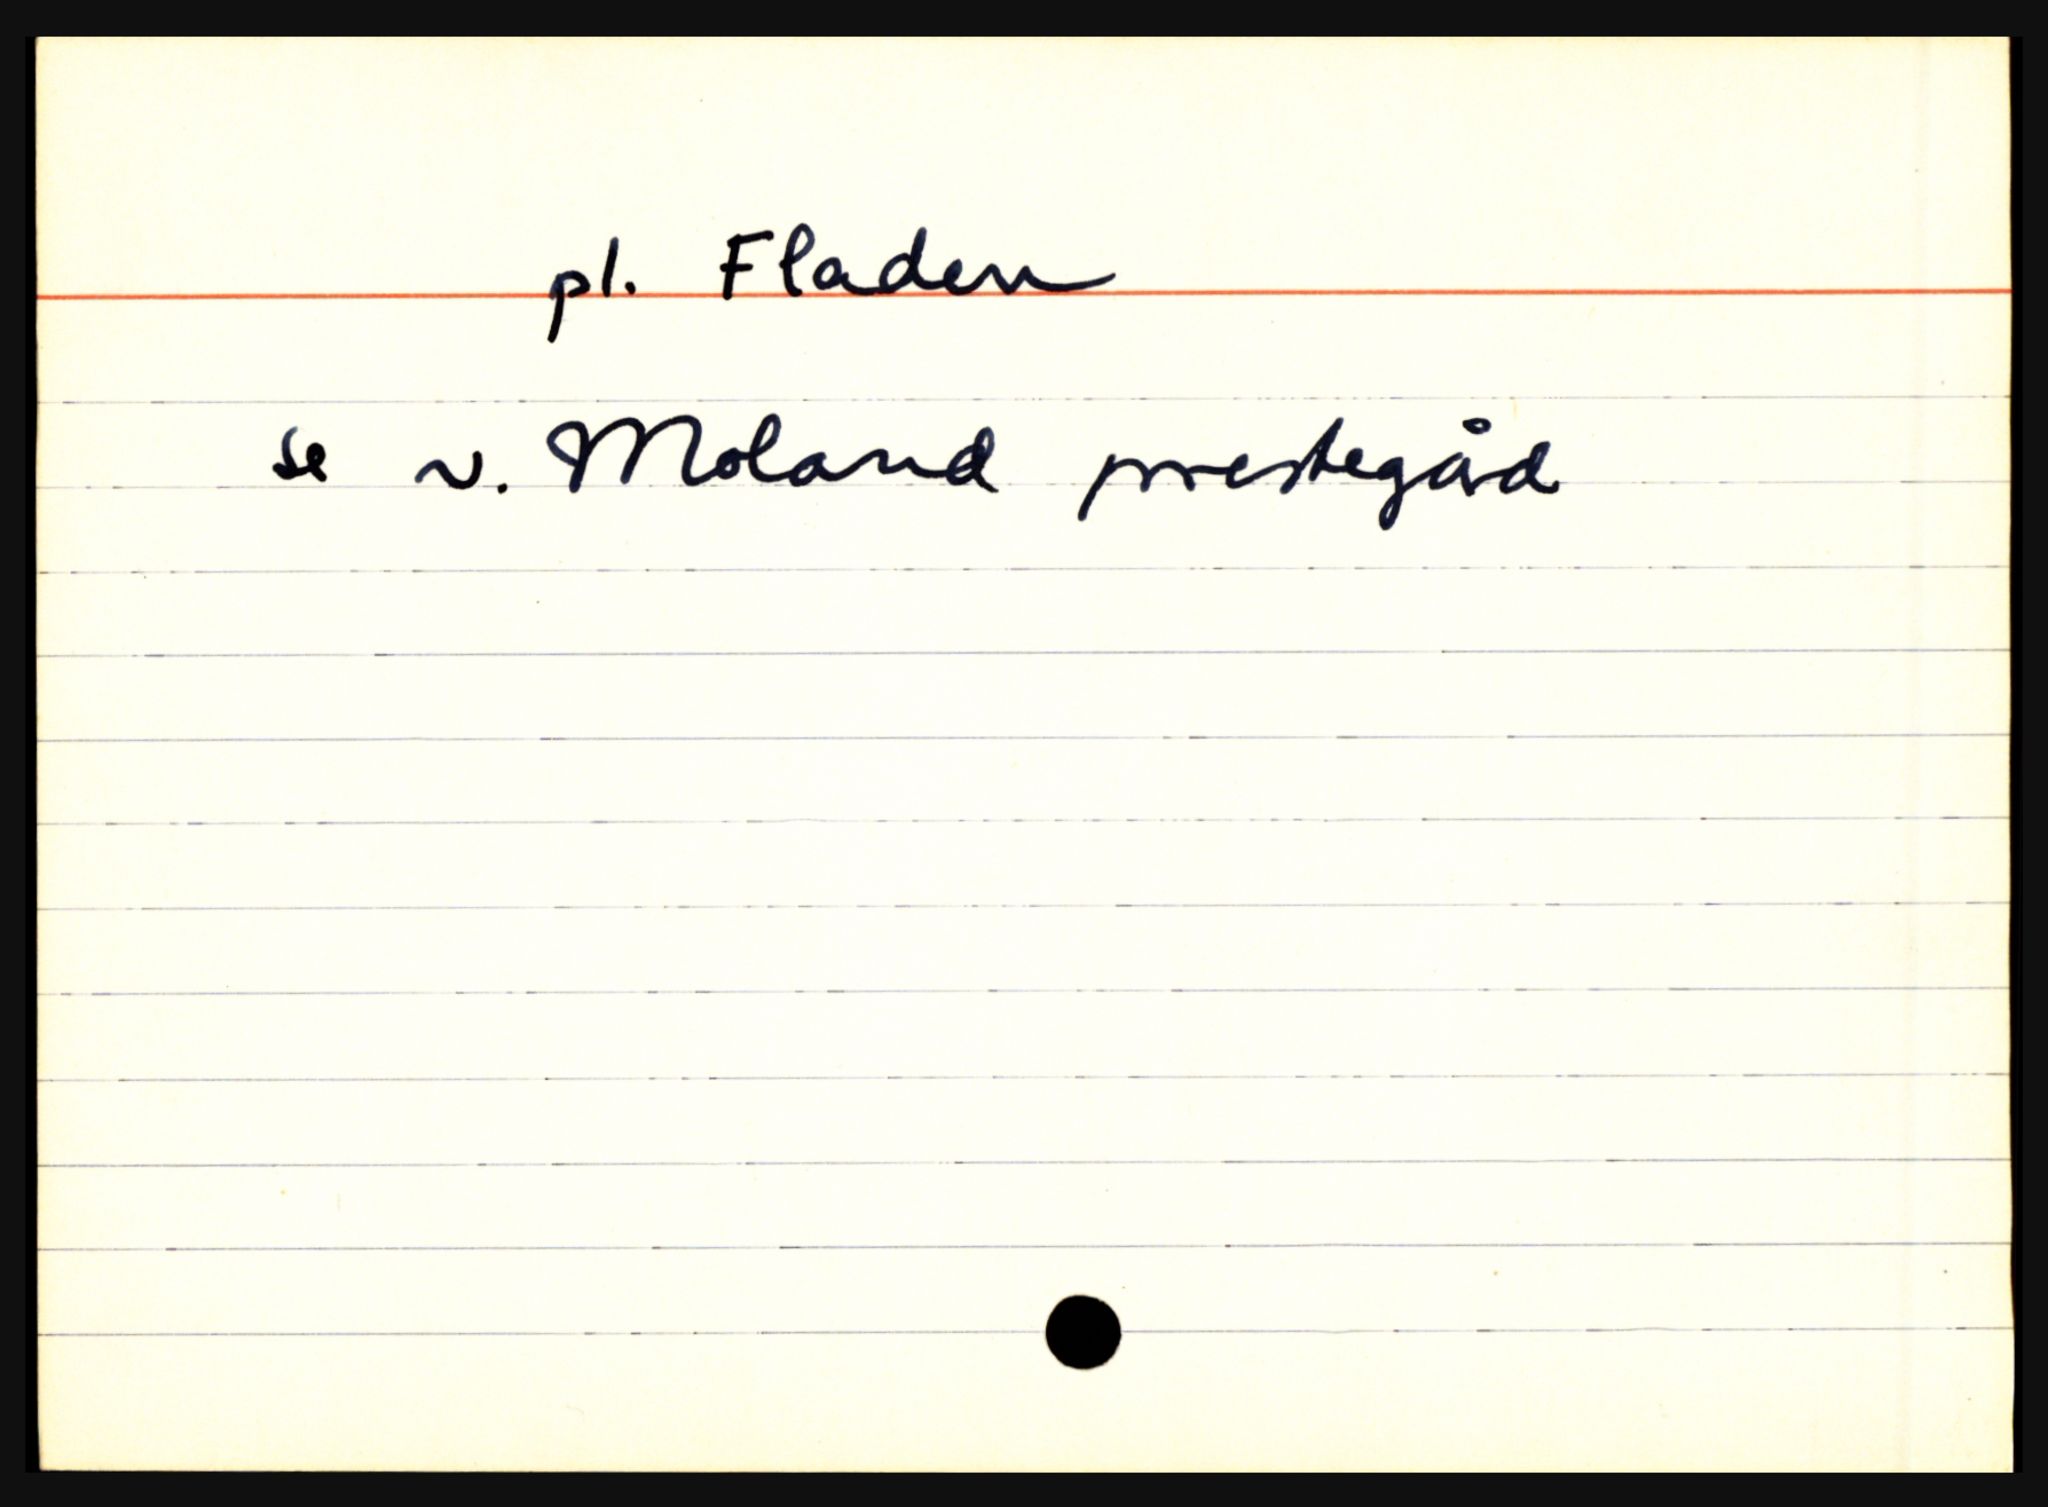 pl. Fladen
se v. Moland prestegård